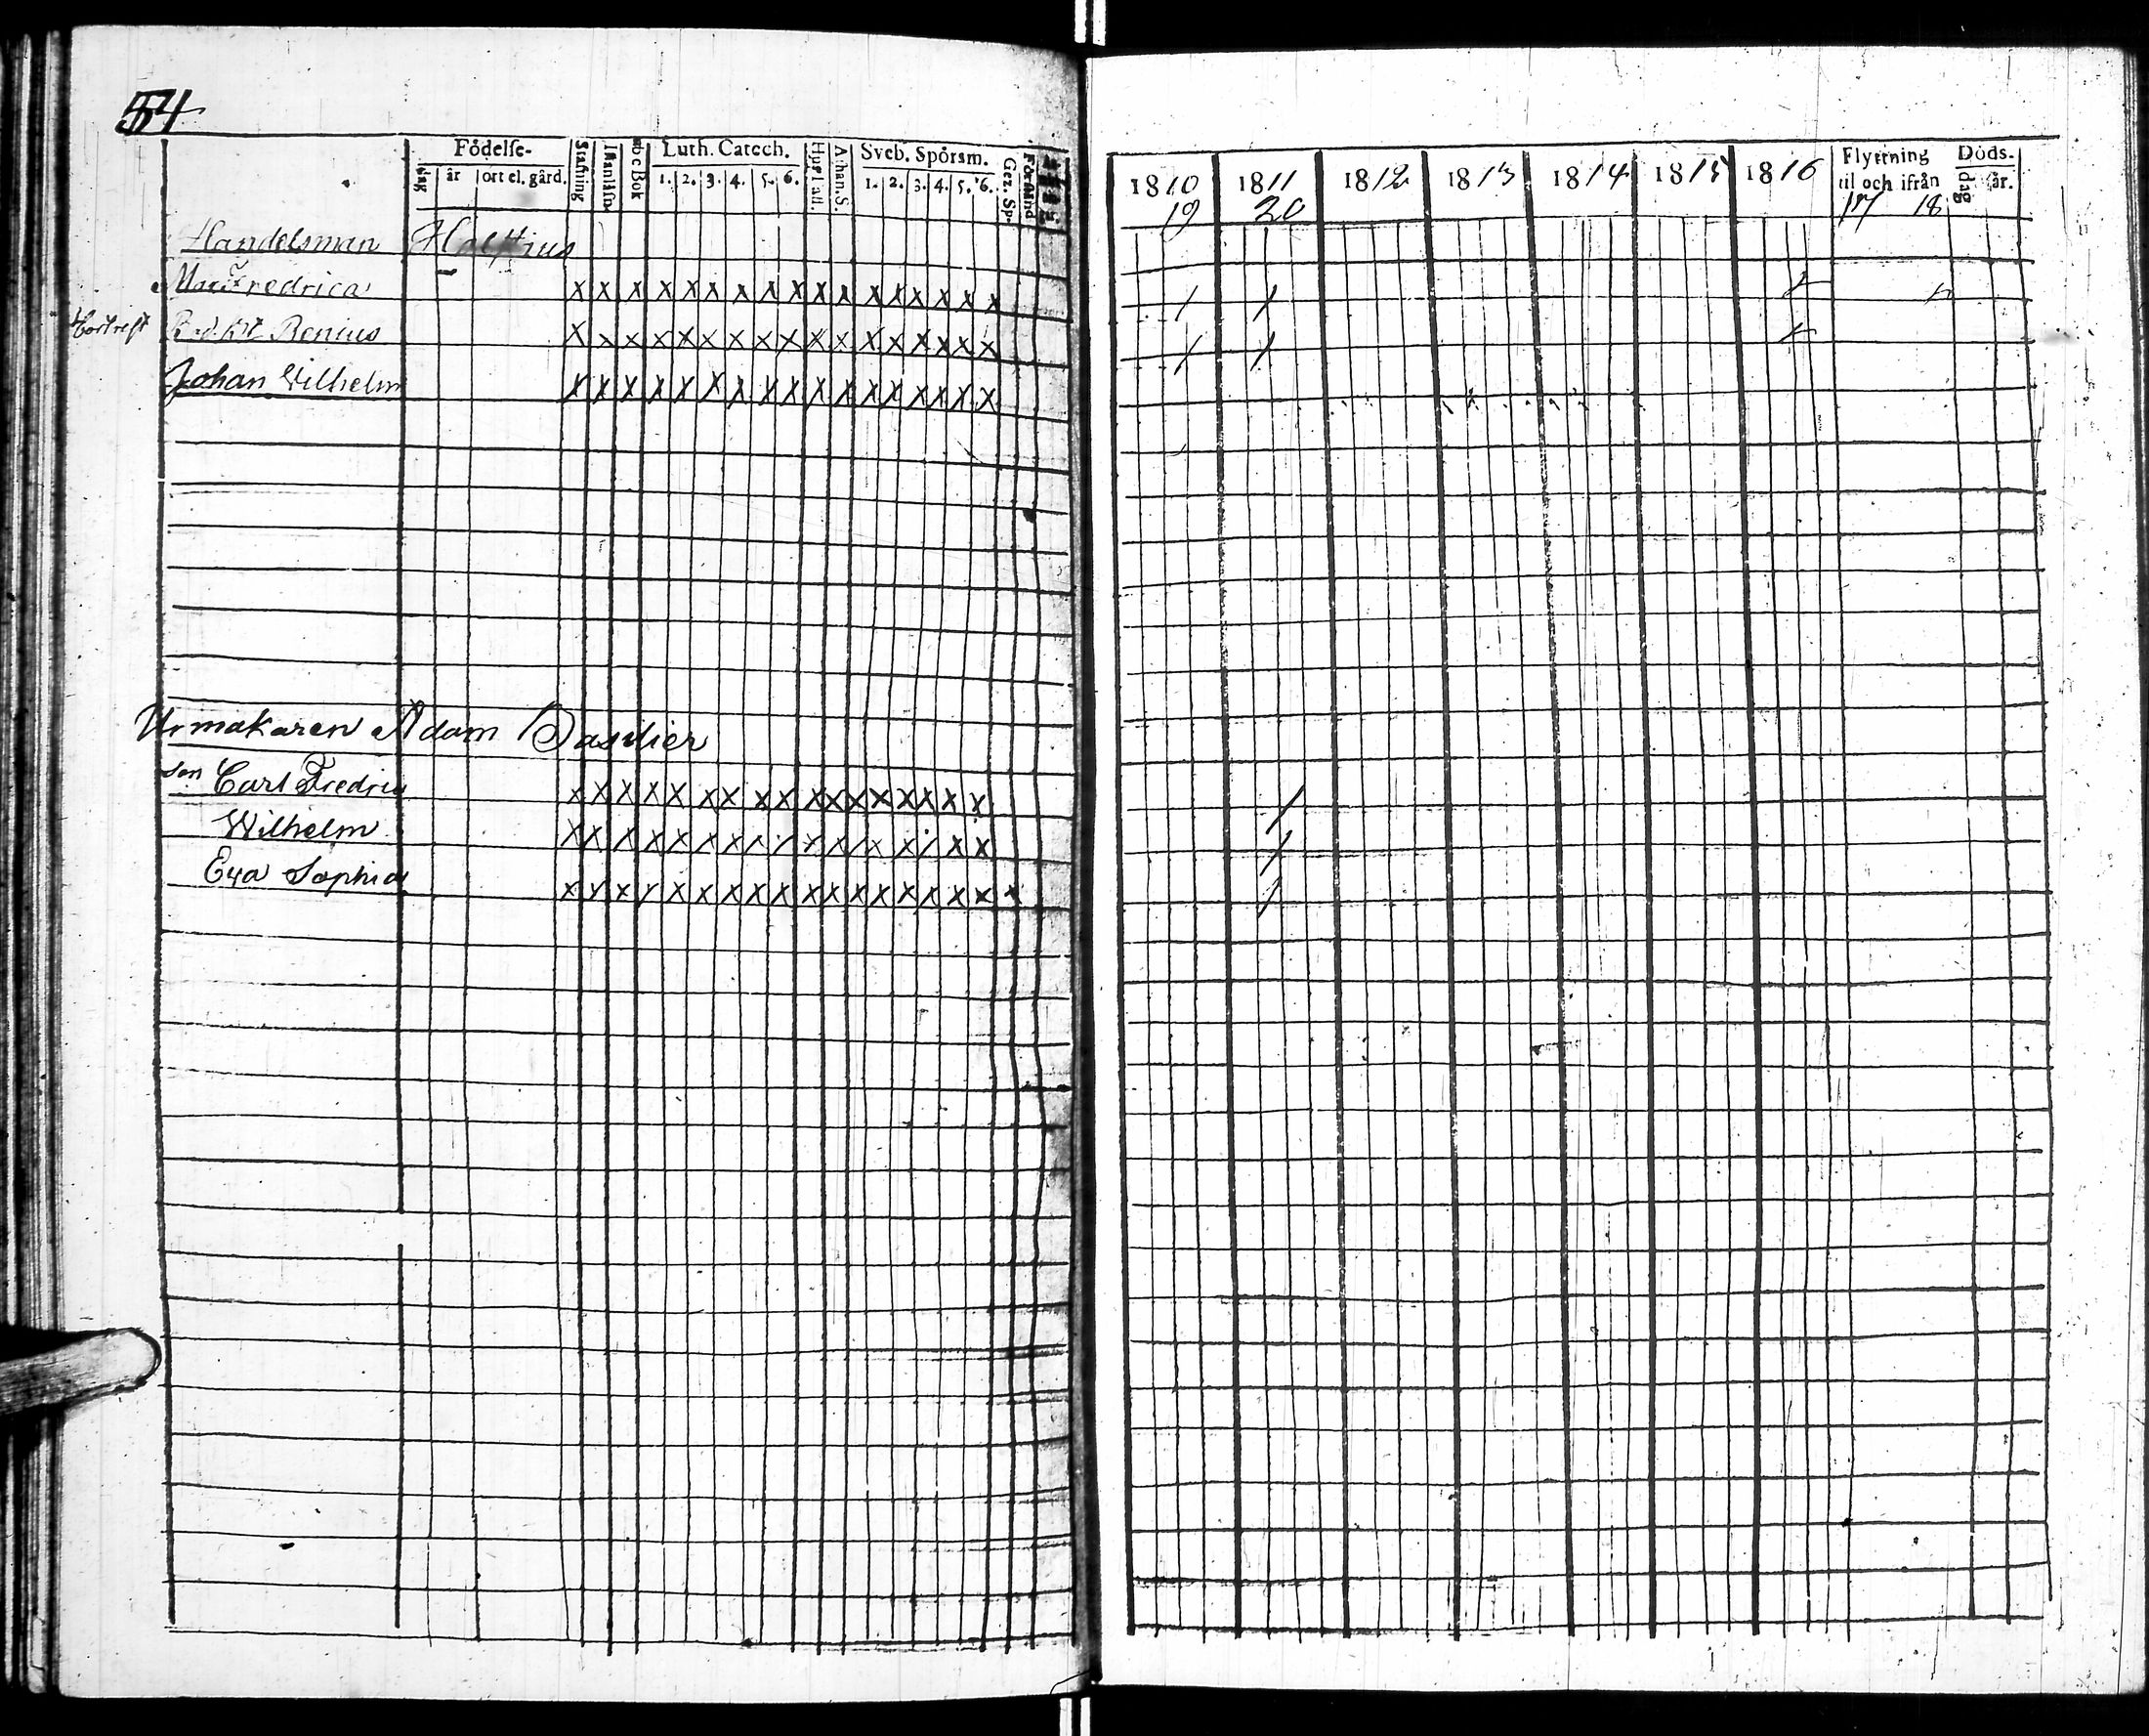 54
Födelse-
dag år ort el. gård.
Stafning
Innanläsn.
abc Bok
Luth. Catech.
1. 2. 3. 4. 5. 6.
Hustafl.
Athan. S.
Sveb. Spörsm.
1. 2. 3. 4. 5. 6.
Gez. Sp.
Förstånd
Handelsman
Fredrica
Benius
Johan Wilhelm
Urmakaren Adam Basilier
son Carl Fredric
Wilhelm
Eva Sophia
1810 1811 1812 1813 1814 1815 1816
19 20
Flyttning
til och ifrån
17 18
Döds-
dag år.